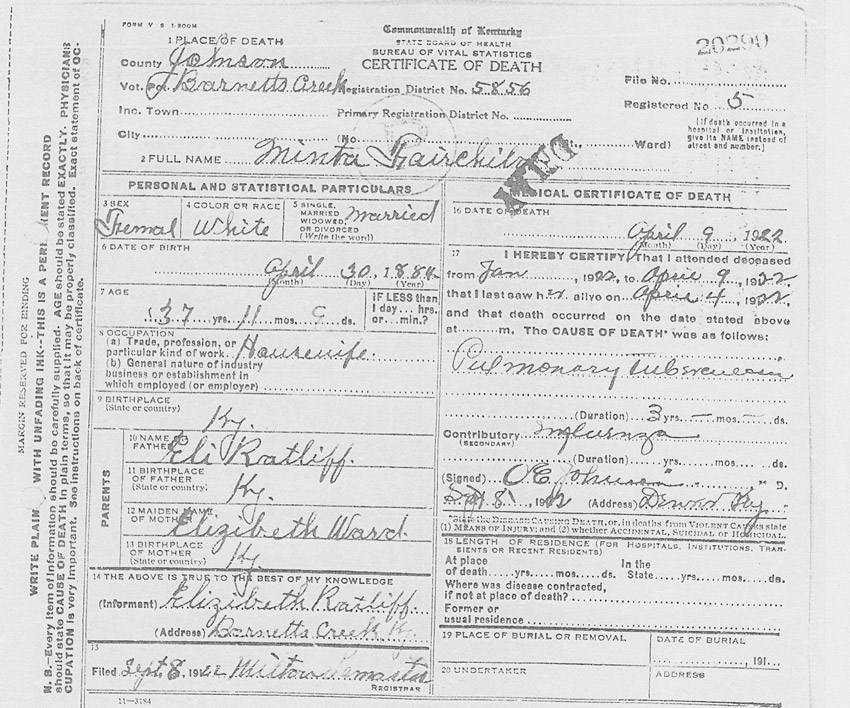 FORM V S 1-500M
Commonwealth of Kentucky
STATE BOARD OF HEALTH
BUREAU OF VITAL STATISTICS
CERTIFICATE OF DEATH
20290
1 PLACE OF DEATH
County Johnson
Vot. Pct. Barnetts Creek Registration District No. 5856
File No.
Inc. Town Primary Registration District No.
Registered No. 5
City (No. Ward)
(If death occurred in a
hospital or institution,
give its NAME instead of
street and number.)
2 FULL NAME Minta Fairchild
PERSONAL AND STATISTICAL PARTICULARS
3 SEX
Femal
4 COLOR OR RACE
White
5 SINGLE,
MARRIED
WIDOWED,
OR DIVORCED
(Write the word)
Married
6 DATE OF BIRTH
April 30, 1884
(Month) (Day) (Year)
7 AGE
37 yrs. 11 mos. 9 ds.
IF LESS than
1 day... hrs.
or... min.?
8 OCCUPATION
(a) Trade, profession, or
particular kind of work Housewife.
(b) General nature of industry
business or establishment in
which employed (or employer)
9 BIRTHPLACE
(State or country)
Ky.
PARENTS
10 NAME
FATHER
Eli Ratliff.
11 BIRTHPLACE
OF FATHER
(State or country)
Ky.
12 MAIDEN NAME
OF MOTHER
Elizabeth Ward.
13 BIRTHPLACE
OF MOTHER
(State or country)
Ky.
14 THE ABOVE IS TRUE TO THE BEST OF MY KNOWLEDGE
(Informant) Elizabeth Ratliff.
(Address) Barnetts Creek Ky.
15
Filed Sept. 8, 1922 Milton
REGISTRAR
11-3184
MEDICAL CERTIFICATE OF DEATH
16 DATE OF DEATH
April 9, 1922
(Month) (Day) (Year)
17 I HEREBY CERTIFY, That I attended deceased
from Jan, 1922, to April 9, 1922.
that I last saw her alive on April 4, 1922
and that death occurred on the date stated above
at m. The CAUSE OF DEATH* was as follows:
Pulmonary Tuberculosis
(Duration) 3 yrs. — mos. — ds.
Contributory Influenza
(SECONDARY)
(Duration) yrs. mos. ds.
(Signed) Johnson D.
8, 1922 (Address) Ky
*State the DISEASE CAUSING DEATH, or, in deaths from VIOLENT CAUSES state
(1) MEANS OF INJURY; and (2) whether ACCIDENTAL, SUICIDAL or HOMICIDAL.
18 LENGTH OF RESIDENCE (FOR HOSPITALS, INSTITUTIONS, TRAN-
SIENTS OR RECENT RESIDENTS)
At place
of death yrs. mos. ds.
In the
State yrs. mos. ds.
Where was disease contracted,
if not at place of death?
Former or
usual residence
19 PLACE OF BURIAL OR REMOVAL
DATE OF BURIAL
, 191
20 UNDERTAKER
ADDRESS
MARGIN RESERVED FOR BINDING
WRITE PLAIN WITH UNFADING INK--THIS IS A PERMANENT RECORD
N. B.--Every item of information should be carefully supplied. AGE should be stated EXACTLY. PHYSICIANS
should state CAUSE OF DEATH in plain terms, so that it may be properly classified. Exact statement of OC-
CUPATION is very important. See instructions on back of certificate.